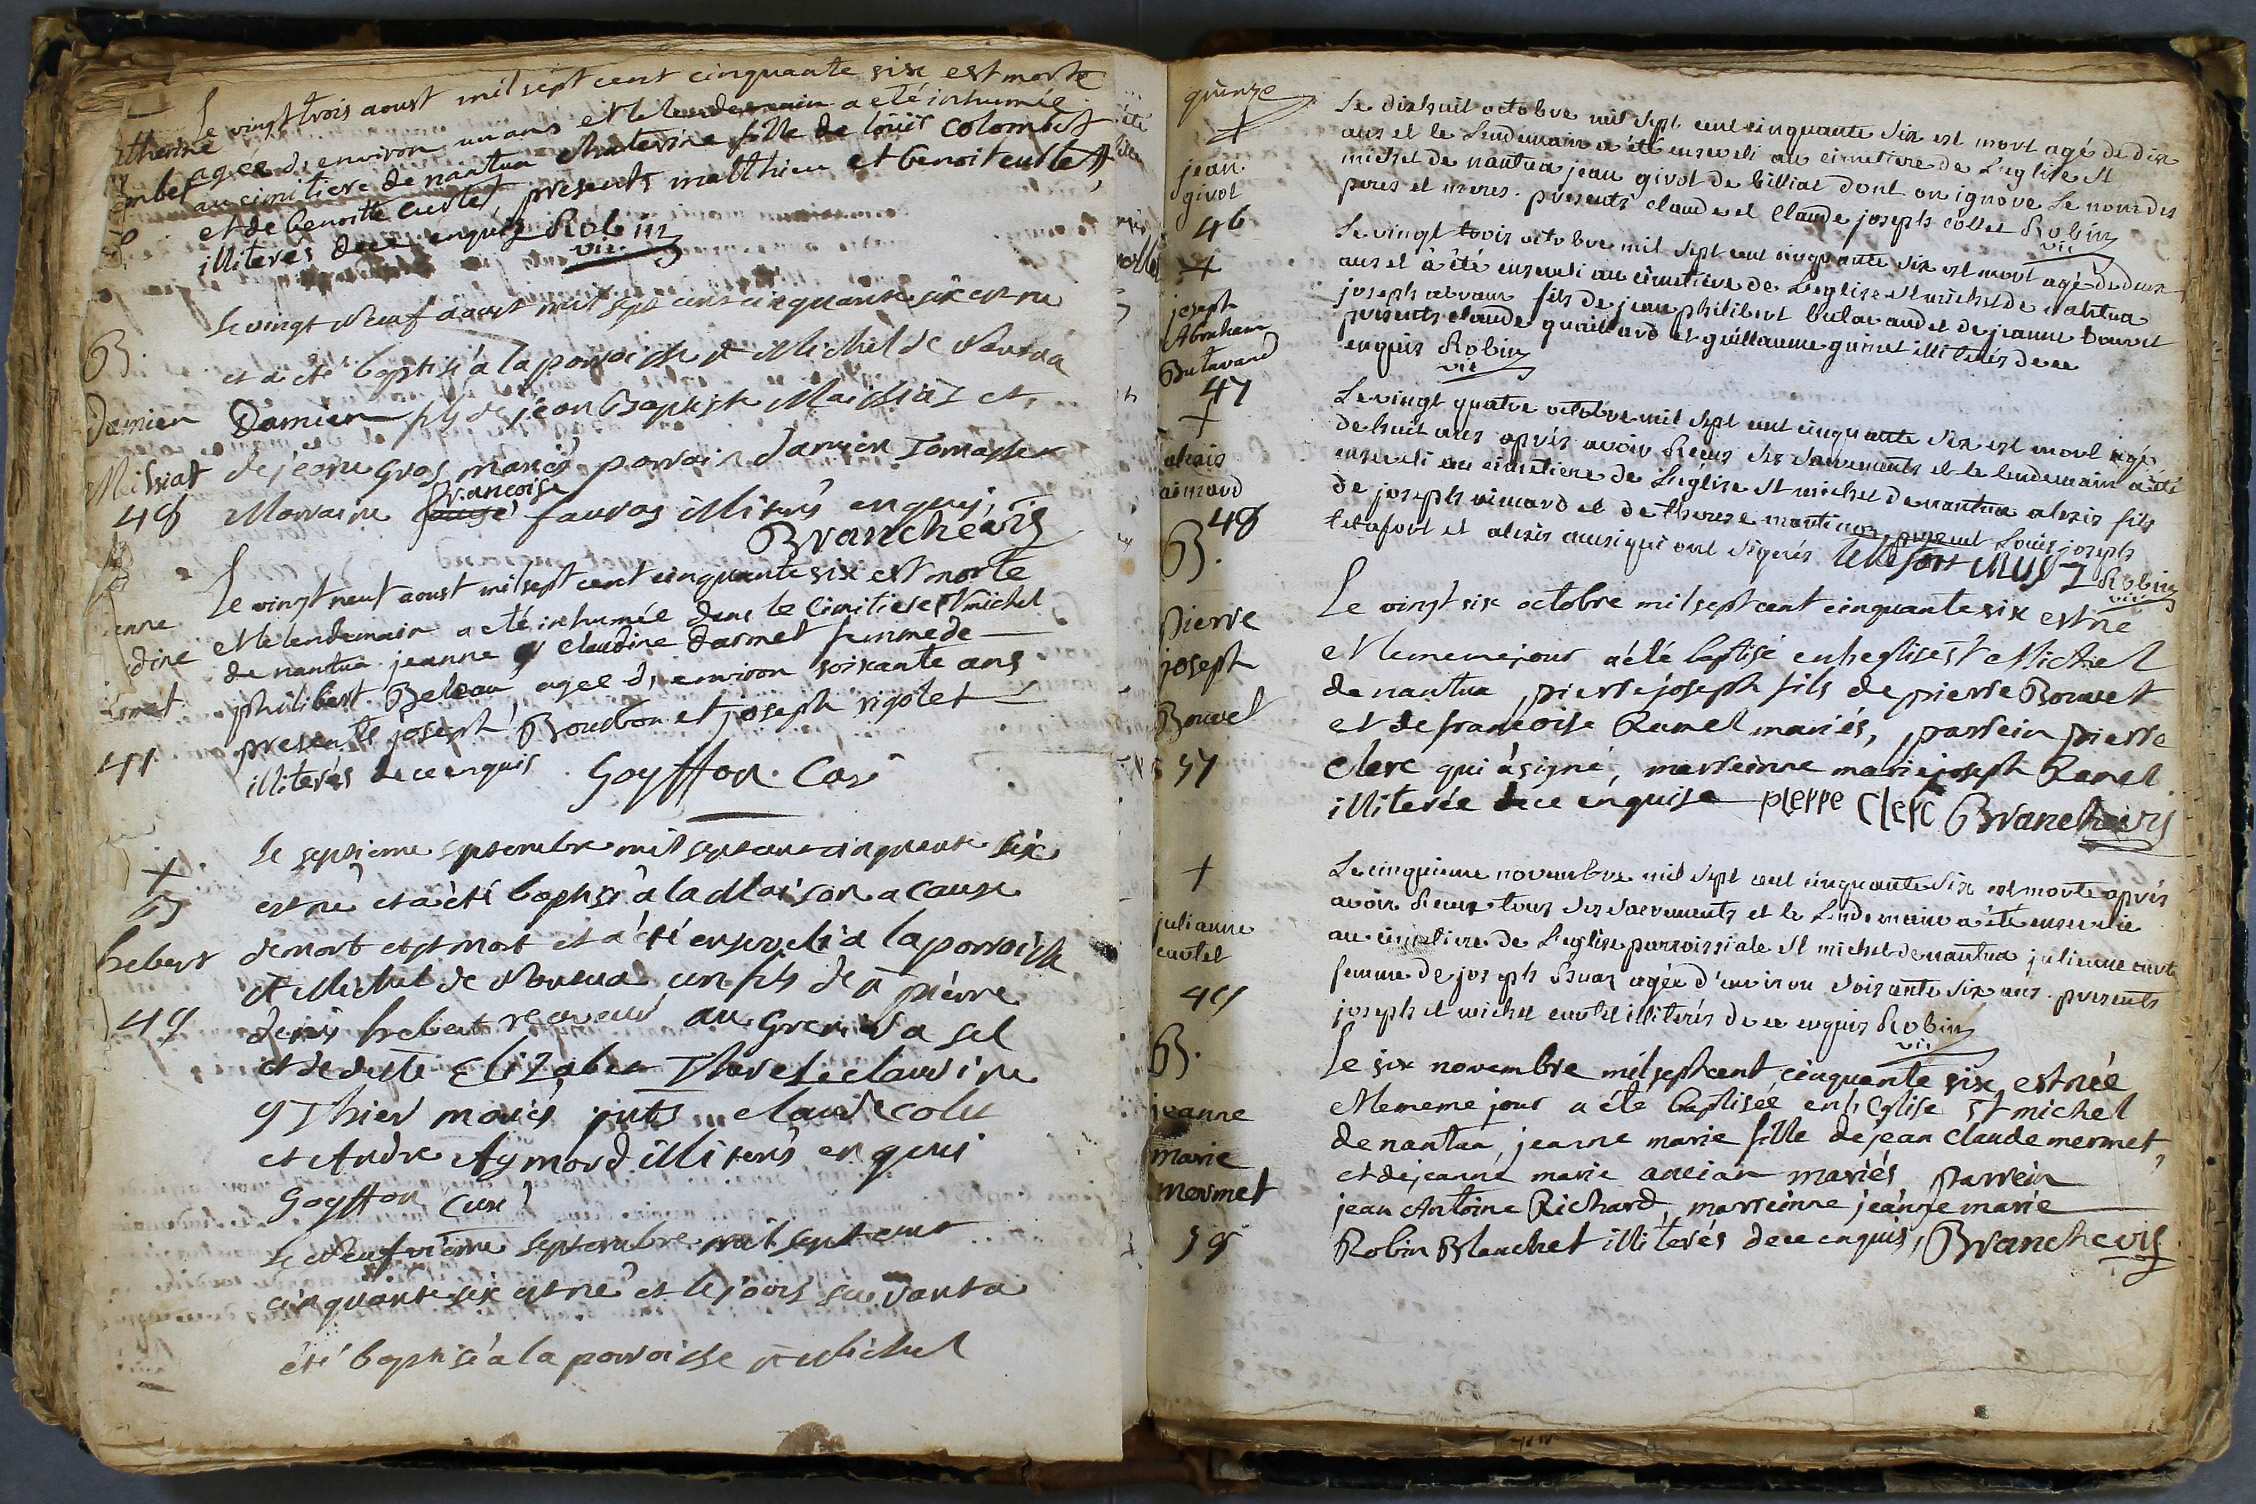 Le vingt trois aoust mil sept cent cinquante six est morte
agee d'environ un ans et le lendemain a eté inhumée
au cimitiere de nantua Chaterine fille de louis Colombet
et de benoitte curtet, presents matthieu et benoit curtet
illiteres de ce enquis Robin
vic.
Le vingt Neuf aoust mil sept cens cinquante six est ne
et a eté baptisé a la parroisse st Michel de Nantua
B.
Damien
Damien fils de jean Baptiste Maissiat et
Missiat
de jeanne Gros mariés parrain Damien
48
Marraine françoise fauras illiterés enquis,
Branche vic
Le vingt neuf aoust mil sept cent cinquante six est morte
et le lendemain a eté inhumée dans le cimitiere st michel
de nantua jeanne claudine Darmet femme de
philibert agee d'environ soixante ans
presents joseph Bourbon et joseph rigolet
47
illiterés de ce enquis Goyffon Curé
+
Le septieme septembre mil sept cens cinquante six
B
est né et a eté baptisé a la Maison a cause
hebert
de mort et est mort et a eté enseveli a la parroisse
st Michel de Nantua un fils de pierre
49
denis hebert receveur au Grenier a sel
et de Elizabet Therese claudine
mariés claude colet
et Andre Aymard illiterés enquis
Goyffon Curé
Le Neufvieme septembre mil sept cens
cinquante six est né et le jour suivant a
été baptisé a la parroisse st Michel
quinze
Le dixhuit octobre mil sept cent cinquante six est mort agé de dix
+
ans et le lendemain a été enseveli au cimetiere de L'eglise st
jean
givot
michel de nantua jean givot de billiat dont on ignore le nom des
peres et meres. presents claude et Claude joseph collet Robin
vic
46
Le vingt trois octobre mil sept cent cinquante six est mort agé de deux
+
ans et a été enseveli au cimetiere de L'eglise st michel de nantua
joseph
Abraham
Butavand
joseph abraam fils de jean philibert butavand et de jeanne bouvet
presents claude guillard et guillaume guinet illiterés de ce
enquis Robin
vic
47
+
Le vingt quatre octobre mil sept cent cinquante six est mort agé
de huit ans aprés avoir Receus ses sacrements et le lendemain a été
alexis
aimard
enseveli au cimetiere de L'eglise st michel de nantua alexis fils
de joseph aimard et de therese present Louis joseph
48
tetafort et alexis qui ont signés Robin
vic
B.
Le vingt six octobre mil sept cent cinquante six est né
Pierre
joseph
Bouvet
57
et le meme jour a été baptisé en l'eglise st Michel
de nantua, pierre joseph fils de pierre Bouvet
et de françoise Ramel mariés, parrein pierre
Clerc qui a signé, marreinne marie joseph Ramel
illiterée de ce enquise pierre Clerc Branche vic
+
Le cinquieme novembre mil sept cent cinquante six est morte aprés
julianne
curtet
avoir Receus tous ses sacrements et le Lendemain a été ensevelie
au cimetiere de L'eglise parroissiale st michel de nantua julienne curtet
femme de joseph agée d'environ soixante six ans presents
49
joseph et michel curtet illiterés de ce enquis Robin
vic
B.
Le six novembre mil sept cent cinquante six est née
jeanne
marie
mermet
et le meme jour a été baptisée en l'eglise st michel
de nantua, jeanne marie fille de jean claude mermet,
et de jeanne marie ancian mariés parrein
jean Antoine Richard, marreinne jeanne marie
58
Robin Blanchet illiterés de ce enquis, Branche vic